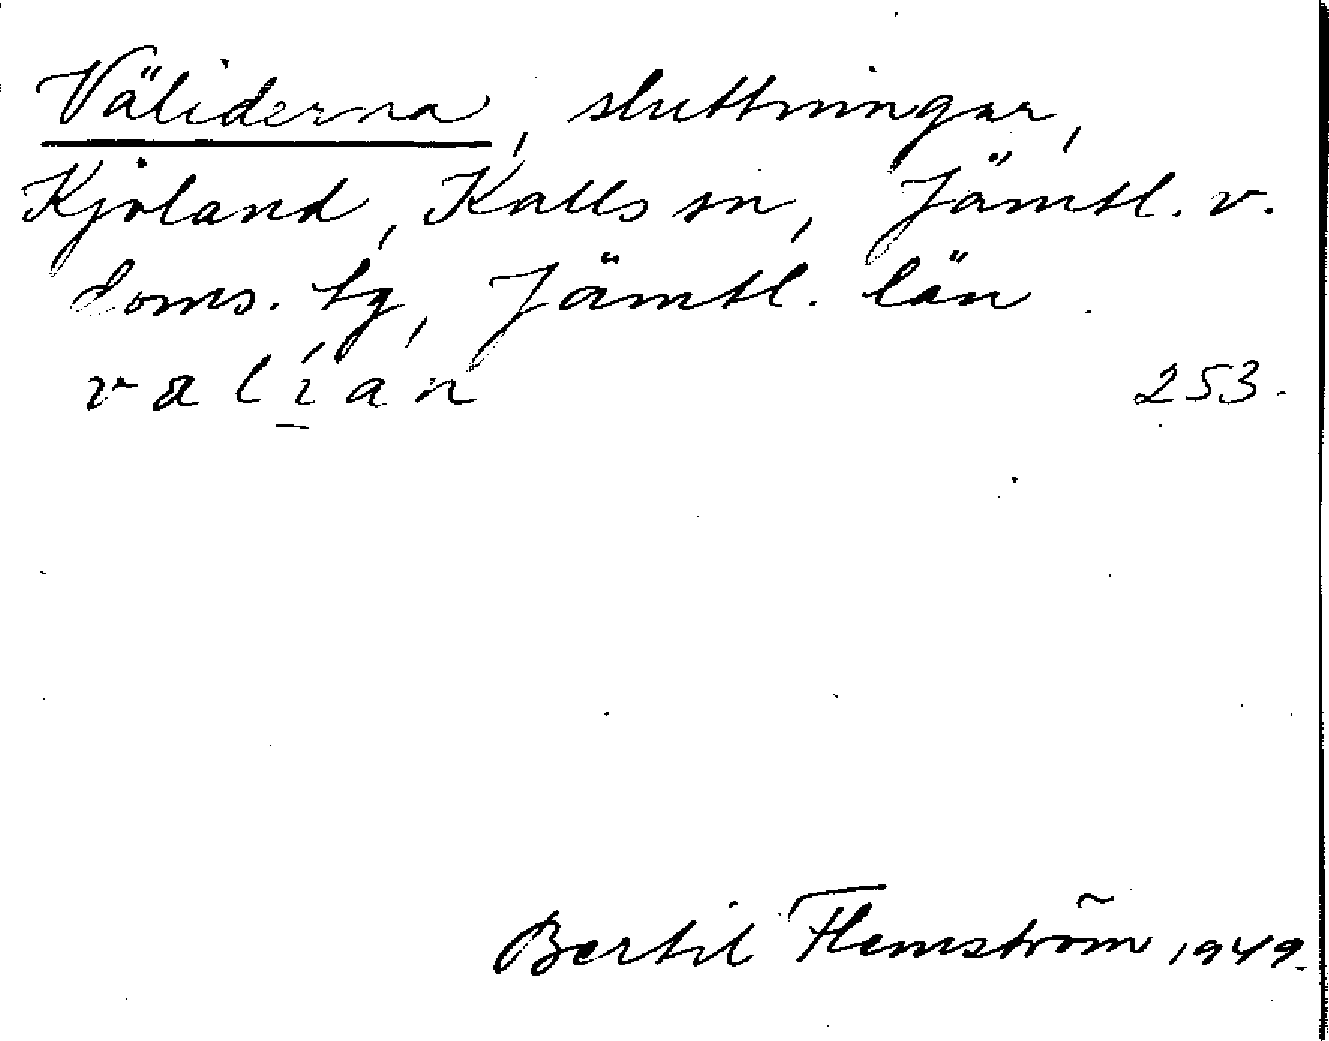 Väliderna, sluttningar,
Kjoland, Kalls sn, Jämtl. v.
doms. tg, Jämtl. län
valían 253.
Bertil Flemström 1949.